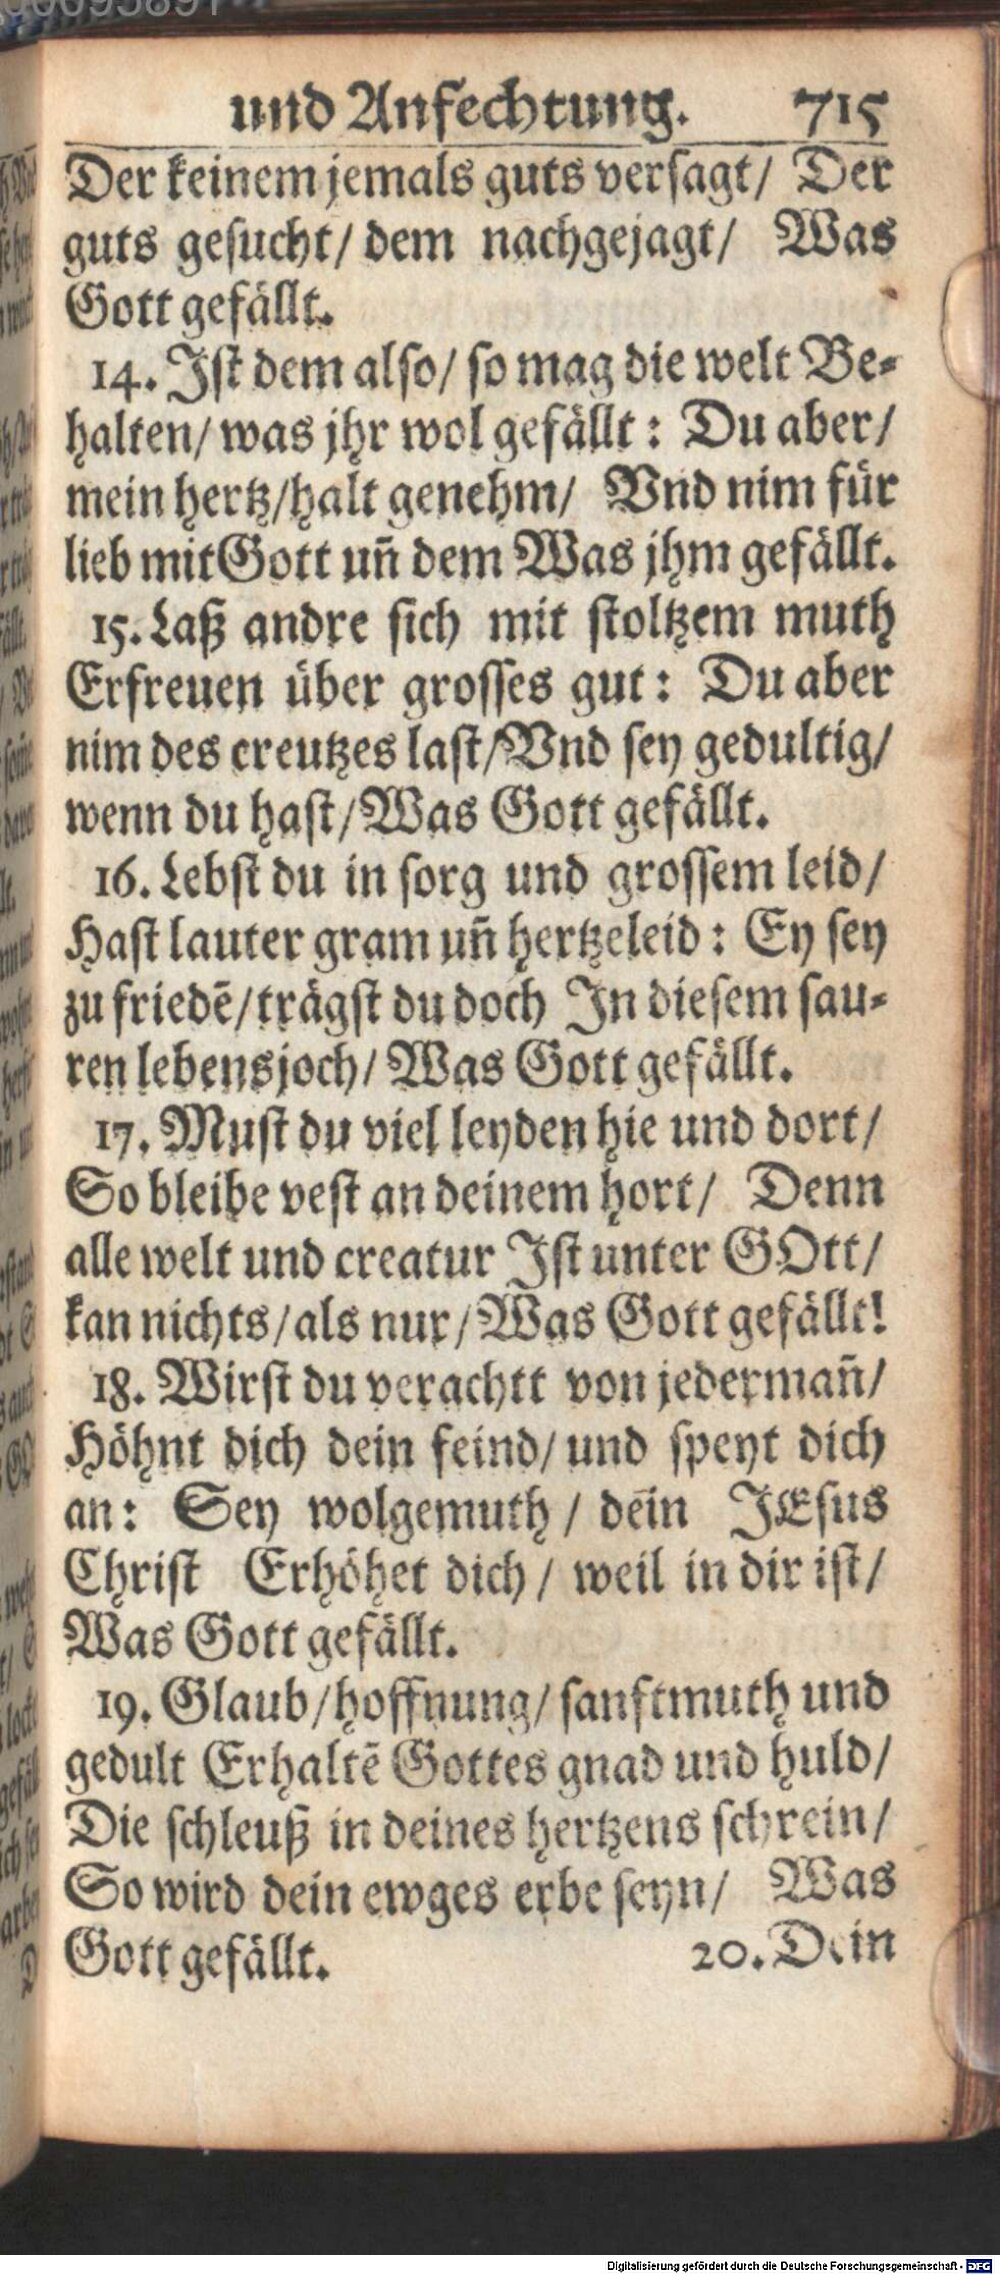 und Anfechtung. 715
Der keinem jemals guts versagt/ Der
guts gesucht/ dem nachgejagt/ Was
Gott gefällt.
14. Ist dem also/ so mag die welt Be-
halten/ was jhr wol gefällt: Du aber/
mein hertz/halt genehm/ Vnd nim für
lieb mit Gott uñ dem Was jhm gefällt.
15. Laß andre sich mit stoltzem muth
Erfreuen über grosses gut: Du aber
nim des creutzes last/Vnd sey gedultig/
wenn du hast/Was Gott gefällt.
16. Lebst du in sorg und grossem leid/
Hast lauter gram uñ hertzeleid: Ey sey
zu friedẽ/trägst du doch In diesem sau-
ren lebensjoch/ Was Gott gefällt.
17. Must du viel leyden hie und dort/
So bleibe vest an deinem hort/ Denn
alle welt und creatur Ist unter GOtt/
kan nichts/als nur/Was Gott gefällt!
18. Wirst du verachtt von jedermañ/
Höhnt dich dein feind/ und speyt dich
an: Sey wolgemuth/ dein JEsus
Christ Erhöhet dich/ weil in dir ist/
Was Gott gefällt.
19. Glaub/hoffnung/sanftmuth und
gedult Erhaltẽ Gottes gnad und huld/
Die schleuß in deines hertzens schrein/
So wird dein ewges erbe seyn/ Was
Gott gefällt. 20. Dein
Digitalisierung gefördert durch die Deutsche Forschungsgemeinschaft - DFG